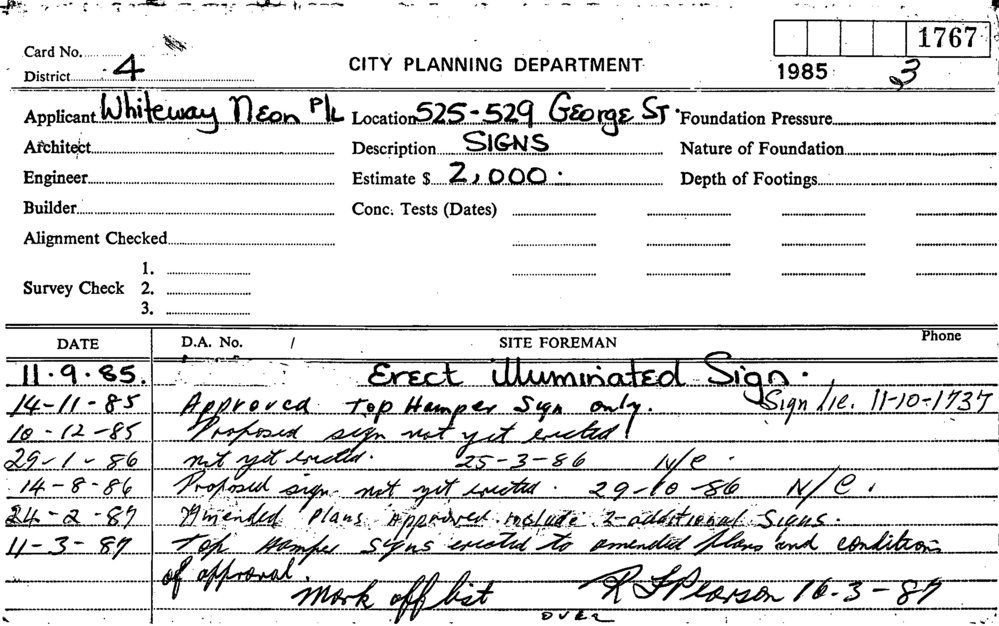 1767
Card No.
CITY PLANNING DEPARTMENT
District 4
1985 3
Applicant Whiteway Neon P/L Location 525-529 George St. Foundation Pressure
Architect Description SIGNS Nature of Foundation
Engineer Estimate $ 2,000. Depth of Footings
Builder Conc. Tests (Dates)
Alignment Checked
1.
Survey Check 2.
3.
DATE D.A. No. / SITE FOREMAN Phone
11.9.85. Erect illuminated Sign.
14-11-85 Approved Top Hamper Sign only. Sign lic. 11-10-1737
10-12-85 Proposed sign not yet erected
29-1-86 not yet erected. 25-3-86 N/C.
14-8-86 Proposed sign not yet erected. 29-10-86 N/C.
24-2-87 Amended Plans approved include 2-additional Signs.
11-3-87 Top Hamper Signs erected to amended plans and conditions
of approval.
Mark off list R F Pearson 16-3-87
OVER